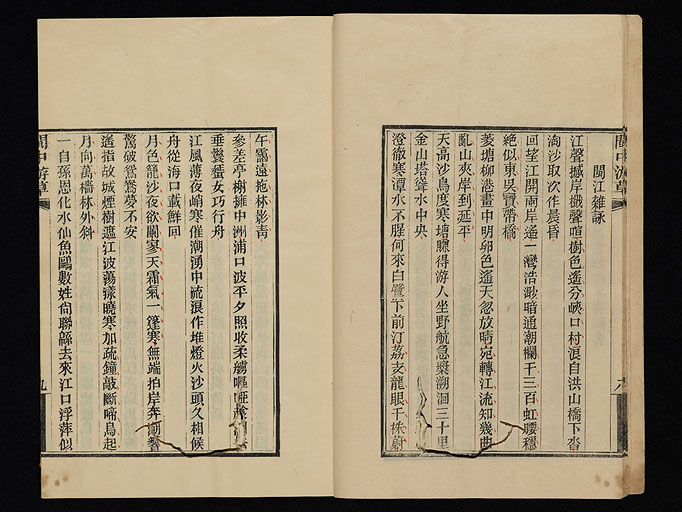 閩江雜詠
江聲撼岸櫓聲喧樹色遙分峽口村浪自洪山橋下沓
淘沙取次作晨昏
回望江開兩岸遙一灣浩渺暗通潮欄干三百虹腰穩
絶似東吳寶帶橋
菱塘柳港畫中明卯色遙天忽放晴宛轉江流知幾曲
亂山夾岸到延平
天高沙鳥度寒塘贏得游人坐野航急槳溯洄三十里
金山塔聳水中央
澄徹寒潭水不腥何來白鷺下前汀荔支龍眼千株蔚
午靄遠拖林影青
參差亭榭擁中洲浦口波平夕照收柔艣嘔啞
垂鬟蜑女巧行舟
江風薄夜峭寒催潮湧中流浪作堆燈火沙頭久相候
舟從海口載鮮回
月色籠沙夜欲闌寥天霜氣一篷寒無端拍岸奔潮響
驚破鴛鴦夢不安
遙指故城煙樹遮江波蕩漾曉寒加疏鐘敲斷啼烏起
月向萬檣林外斜
一自孫恩化水仙魚鷗數姓尙聯緜去來江口浮萍似
閩中游草
九